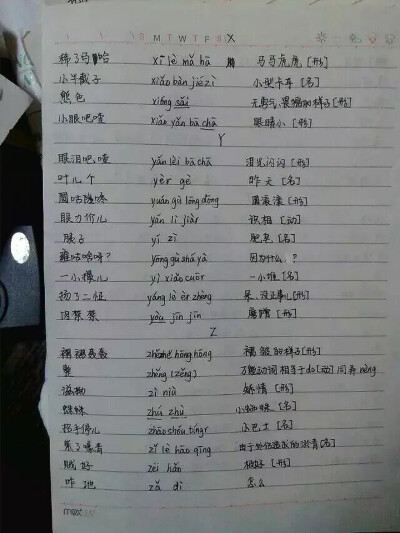 S M T W T F S X
稀了马哈 xī lè mǎ hā 马马虎虎 [形]
小半截子 xiǎo bàn jiézi 小型卡车 [名]
熊色 xióng sǎi 无勇气、畏缩的样子[形]
小眼吧喳 xiǎo yǎn bā chā 眼睛小 [形]
Y
眼泪吧喳 yǎn lèi bā chā 泪光闪闪 [形]
叶儿个 yèr gè 昨天 [名]
圆咕隆咚 yuán gū lōng dōng 圆滚滚 [形]
眼力价儿 yǎn lì jiàr 识相 [动]
胰子 yí zi 肥皂 [名]
因为什么?
一小撮儿 yì xiǎo cuōr 一小堆 [名]
扬了二怔 yáng lè èr zhèng 呆、没正事儿[形]
yòu jīn jīn [形]
Z
hōng hōng 褶皱的样子[形]
整 zhěng 万能动词 相当于do[动] 同弄nèng
zì niù 矫情 [形]
蛛蛛 zhú zhù 小蜘蛛 [名]
招手停儿 zhāo shǒu tíngr 小巴士 [名]
zǐ lè hāo qīng 由于外伤造成的淤青[名]
贼好 zéi hǎo 极好 [形]
咋地 zǎ dì 怎么